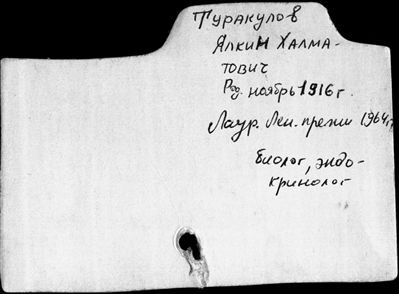 Туракулов
Ялкин Халма-
тович
Род. ноябрь 1916 г.
Лаур. Лен. премии 1964 г.
биолог, эндо-
кринолог